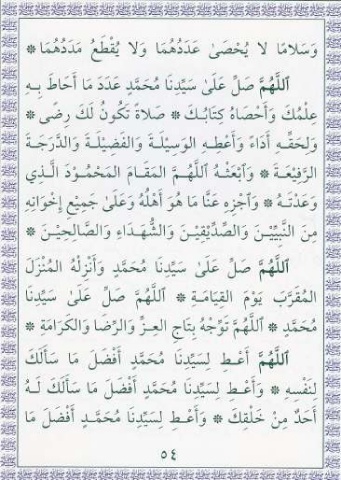 وَسَلَامًا لَا يُحْصَىٰ عَدَدُهُمَا وَلَا يُقْطَعُ مَدَدُهُمَا ❁
اَللَّهُمَّ صَلِّ عَلَىٰ سَيِّدِنَا مُحَمَّدٍ عَدَدَ مَا أَحَاطَ بِهِ
عِلْمُكَ وَأَحْصَاهُ كِتَابُكَ ❁ صَلَاةً تَكُونُ لَكَ رِضًى ❁
وَلِحَقِّهِ أَدَاءً وَأَعْطِهِ الوَسِيلَةَ وَالفَضِيلَةَ وَالدَّرَجَةَ
الرَّفِيعَةَ ❁ وَابْعَثْهُ اللَّهُمَّ المَقَامَ المَحْمُودَ الَّذِي
وَعَدْتَهُ ❁ وَاجْزِهِ عَنَّا مَا هُوَ أَهْلُهُ وَعَلَىٰ جَمِيعِ إِخْوَانِهِ
مِنَ النَّبِيِّينَ وَالصِّدِّيقِينَ وَالشُّهَدَاءِ وَالصَّالِحِينَ ❁
اَللَّهُمَّ صَلِّ عَلَىٰ سَيِّدِنَا مُحَمَّدٍ وَأَنْزِلْهُ المُنْزَلَ
المُقَرَّبَ يَوْمَ القِيَامَةِ ❁ اَللَّهُمَّ صَلِّ عَلَىٰ سَيِّدِنَا
مُحَمَّدٍ ❁ اَللَّهُمَّ تَوِّجْهُ بِتَاجِ العِزِّ وَالرِّضَا وَالكَرَامَةِ ❁
اَللَّهُمَّ أَعْطِ لِسَيِّدِنَا مُحَمَّدٍ أَفْضَلَ مَا سَأَلَكَ
لِنَفْسِهِ ❁ وَأَعْطِ لِسَيِّدِنَا مُحَمَّدٍ أَفْضَلَ مَا سَأَلَكَ لَهُ
أَحَدٌ مِنْ خَلْقِكَ ❁ وَأَعْطِ لِسَيِّدِنَا مُحَمَّدٍ أَفْضَلَ مَا
٥٤